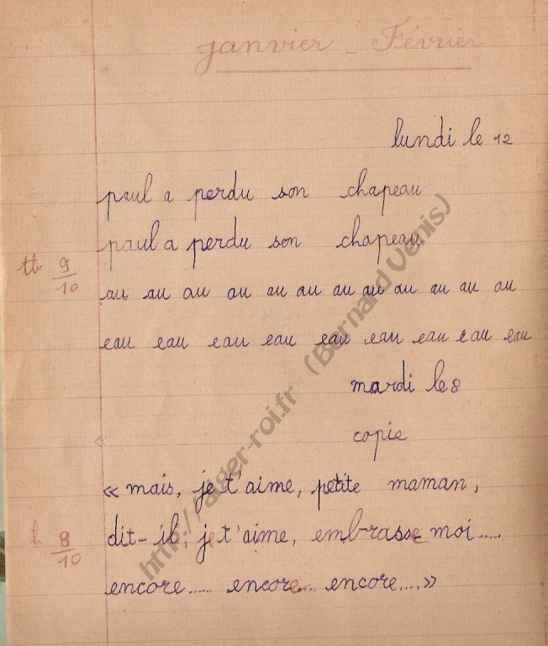 janvier - Février
lundi le 12
paul a perdu son chapeau
paul a perdu son chapeau
tb 9/10
au au au au au au au au au au au au
eau eau eau eau eau eau eau eau eau
mardi le 8
copie
« mais, je t'aime, petite maman,
dit-il; je t'aime, embrasse moi.....
b 8/10
encore..... encore.... encore....»
http://alger-roi.fr (Bernard Venis)